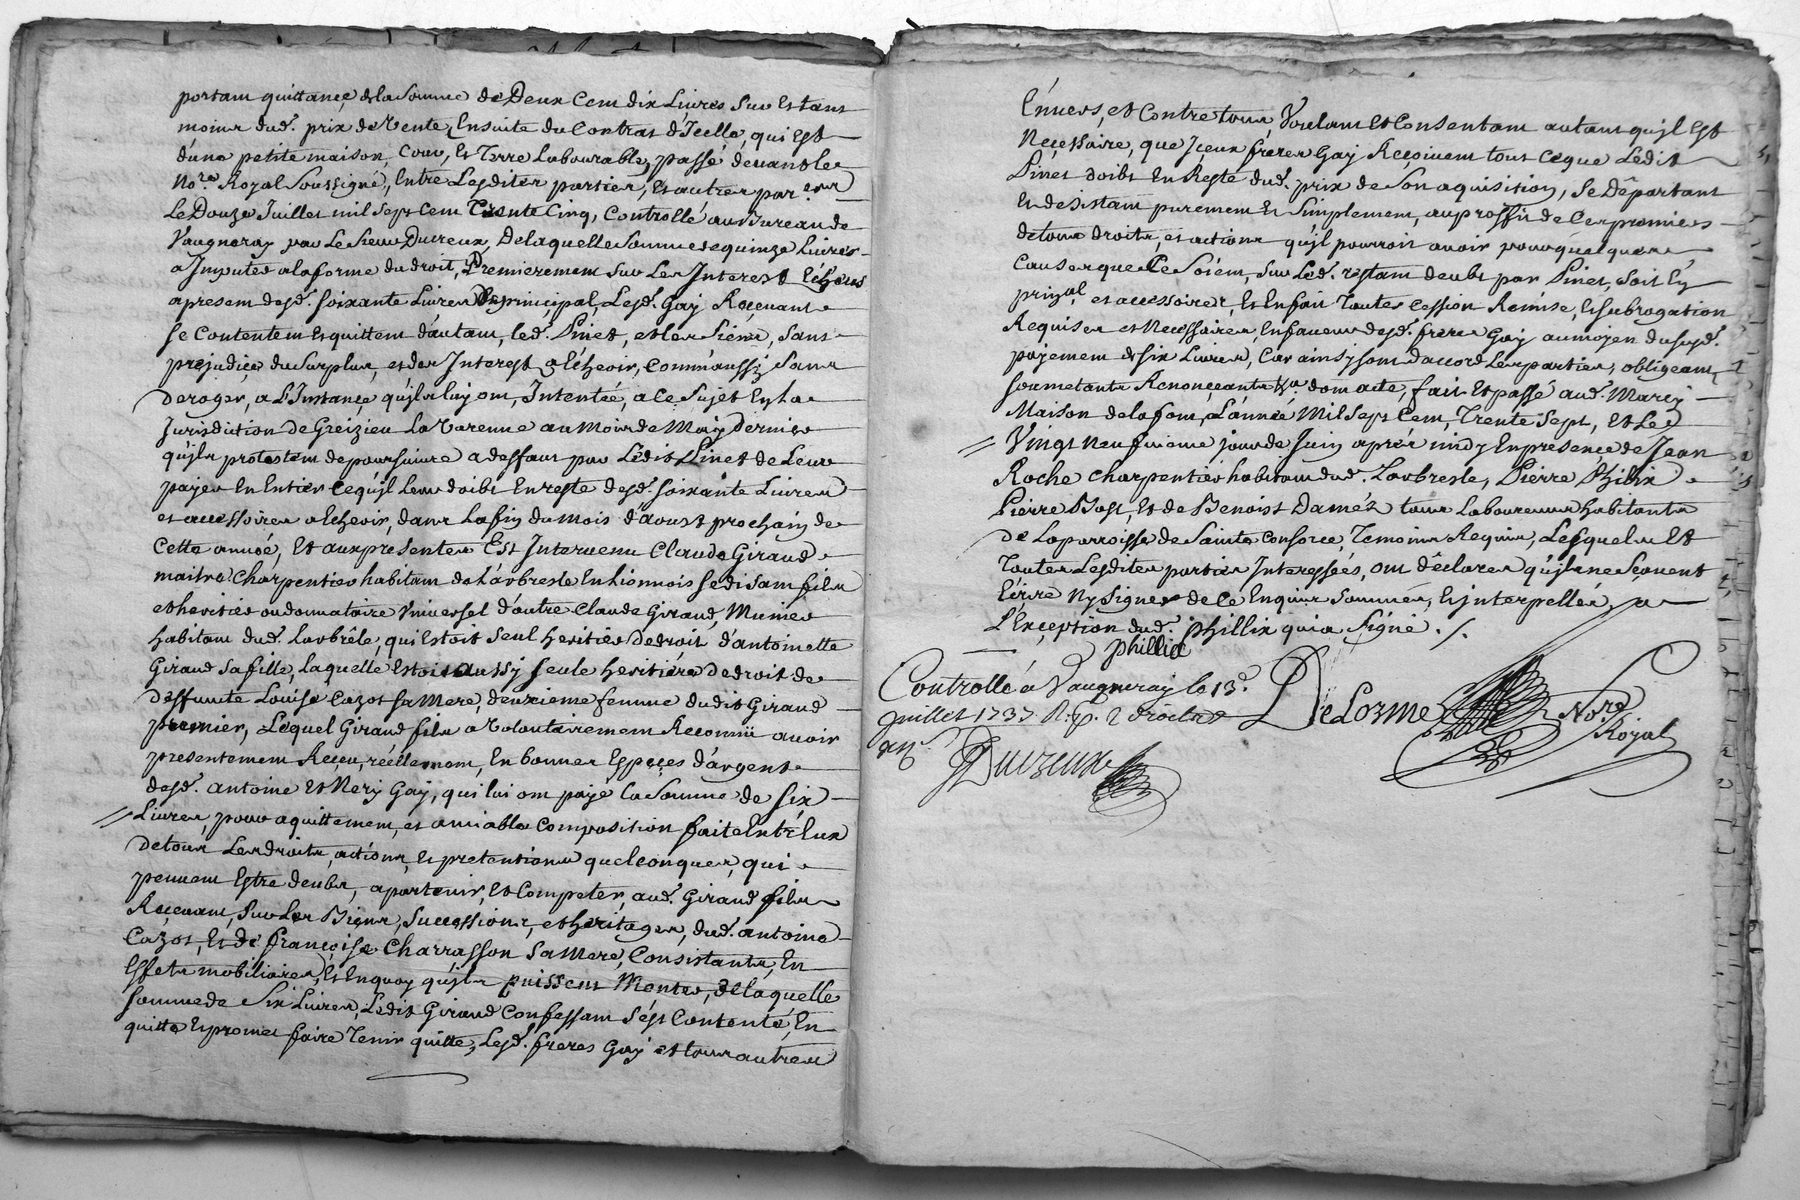 portant quittance de la Somme de Deux Cent dix Livres Sur Et tant
moins dud. prix de Vente, Ensuite du Contrat d'Icelle, qui Est
d'une petite maison, Cour, Et Terre Labourable, passé devant le
No.re Royal Soussigné, Entre Lesdites parties, Et autres par
Le Douze Juillet mil Sept Cent Trente Cinq, Controllé au Bureau de
Vaugneray par Le Sieur Ducreux, De laquelle Somme de quinze Livres
a Imputer a la forme du droit, Premierement Sur Les Interest Echeus
apresent desd. soixante Livres De principal, Lesd. Gay Recevants
se Contentent Et quittent d'autant, led. Pinet, et les Siens, sans
prejudice du Surplus, et des Interest a Echeoir, Comm'aussi Sans
Deroger, a L'Instance qu'ils luy ont, Intentée, a ce Sujet En La
Jurisdiction de Greizieu La Varenne au Mois de May Dernier
qu'ils protestent de poursuivre a deffaut par Ledit Pinet de Leur
payer En Entier ce qu'il Leur doibt En reste desd. soixante Livres
et accessoires a Echeoir, dans La fin du Mois d'aoust prochain de
Cette année, Et aux presentes Est Intervenu Claude Giraud
maitre Charpentier habitant de L'arbresle En Lionnois se disant fils
et heritier ou donnataire Universel d'autre Claude Giraud, Munier
habitant dud. Larbrêle, qui Estoit Seul heritier De droit d'antoinette
Giraud Sa fille, Laquelle Estoit aussy seule heritiere De droit de
Deffunte Louise Cazot Sa Mere, deuxieme femme dudit Giraud
premier, Lequel Giraud fils a Volontairement Reconnu avoir
presentement Receu, réellement, En bonnes Espeçes d'argent
desd. antoine Et Nery Gay, qui lui ont payé la Somme de six
Livres, pour aquittement, et amiable composition faite Entr'Eux
de tous Les droits, actions, Et pretentions quelconques, qui
peuvent Estre deubs, apartenir, Et Competer, aud. Giraud fils
Recevant, Sur Les Biens, Successions, et heritages, dud. antoine
Cazot, Et de françoise Charrasson Sa Mere, Consistants, En
Effets mobiliaires, Et En quoy qu'ils puissent Monter, de laquelle
somme de Six Livres, Ledit Giraud Confessant s'est Contenté, En
quitte Et promet faire Tenir quitte, Lesd. freres Gay et tous autres
Envers, et Contre tous, Voulant Et Consentant autant qu'il Est
Necessaire, que Iceux freres Gay Reçoivent tout ce que Ledit
Pinet doibt En Reste dud. prix de Son aquisition, Se Départant
Et desistant purement Et Simplement, au proffit de Ces premiers
de tous droits, et actions qu'il pourroit avoir pour quelques
Causes que Ce Soient, Sur Led. restant deubt par Pinet, soit En
prizal et accessoires, Et En fait Toutes Cession Remise, Et subrogation
Requises et Necessaires, En faveur desd. freres Gay au moyen du susd.
payement de six Livres, Car ainsy sont d'accord Les parties, obligeants
soumetants Renonçeants dont acte, fait Et passé aud. Marcy
Maison de la font, L'année Mil Sept Cent, Trente Sept, Et Le
Vingt Neufvieme jour de Juin après midy En presence de Jean
Roche Charpentier habitant dud. Larbresle, Pierre Philix
Pierre Bost, Et de Benoist Damés tous Laboureurs habitants
de La parroisse de Sainte Consorce, Temoins Requis, Lesquels Et
Toutes Lesdites parties Interessées, ont déclarer qu'ils ne sçavent
Ecrire Ny Signer de Ce Enquis Sommés, Et interpellés,
L'Exception dud. phillix qui a Signé.
phillix
Controllé a Vaugneray le 13e.
Juillet 1737. R.
Ducreux
DeLorme
No.re
Royal